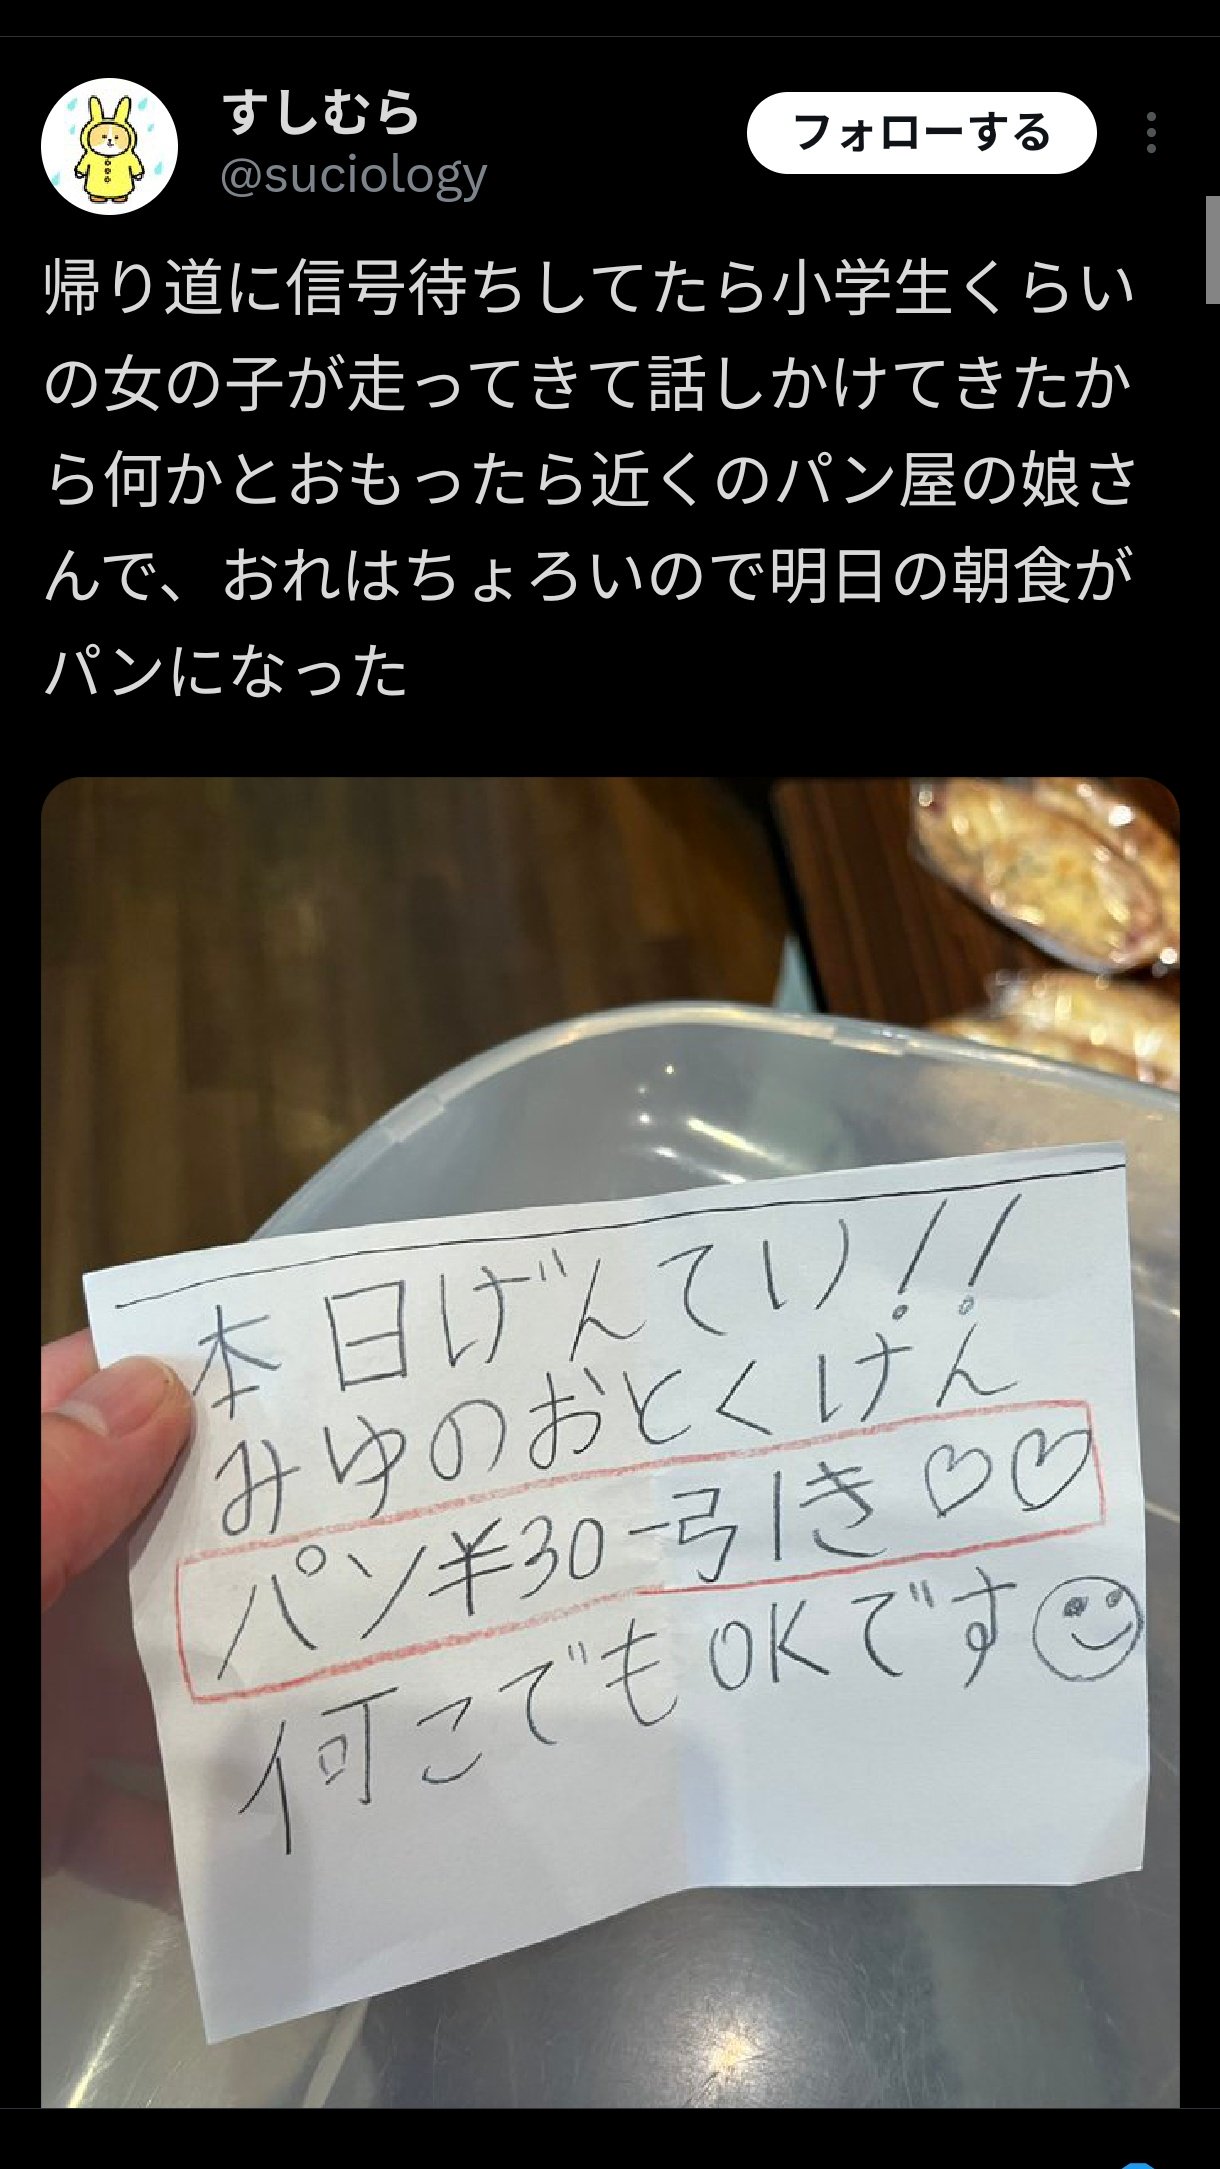 すしむら
フォローする
@suciology
帰り道に信号待ちしてたら小学生くらい
の女の子が走ってきて話しかけてきたか
ら何かとおもったら近くのパン屋の娘さ
んで、おれはちょろいので明日の朝食が
パンになった
本日げんてい!!
みゆのおとくけん
パン¥30-引き♡♡
何こでもOKです